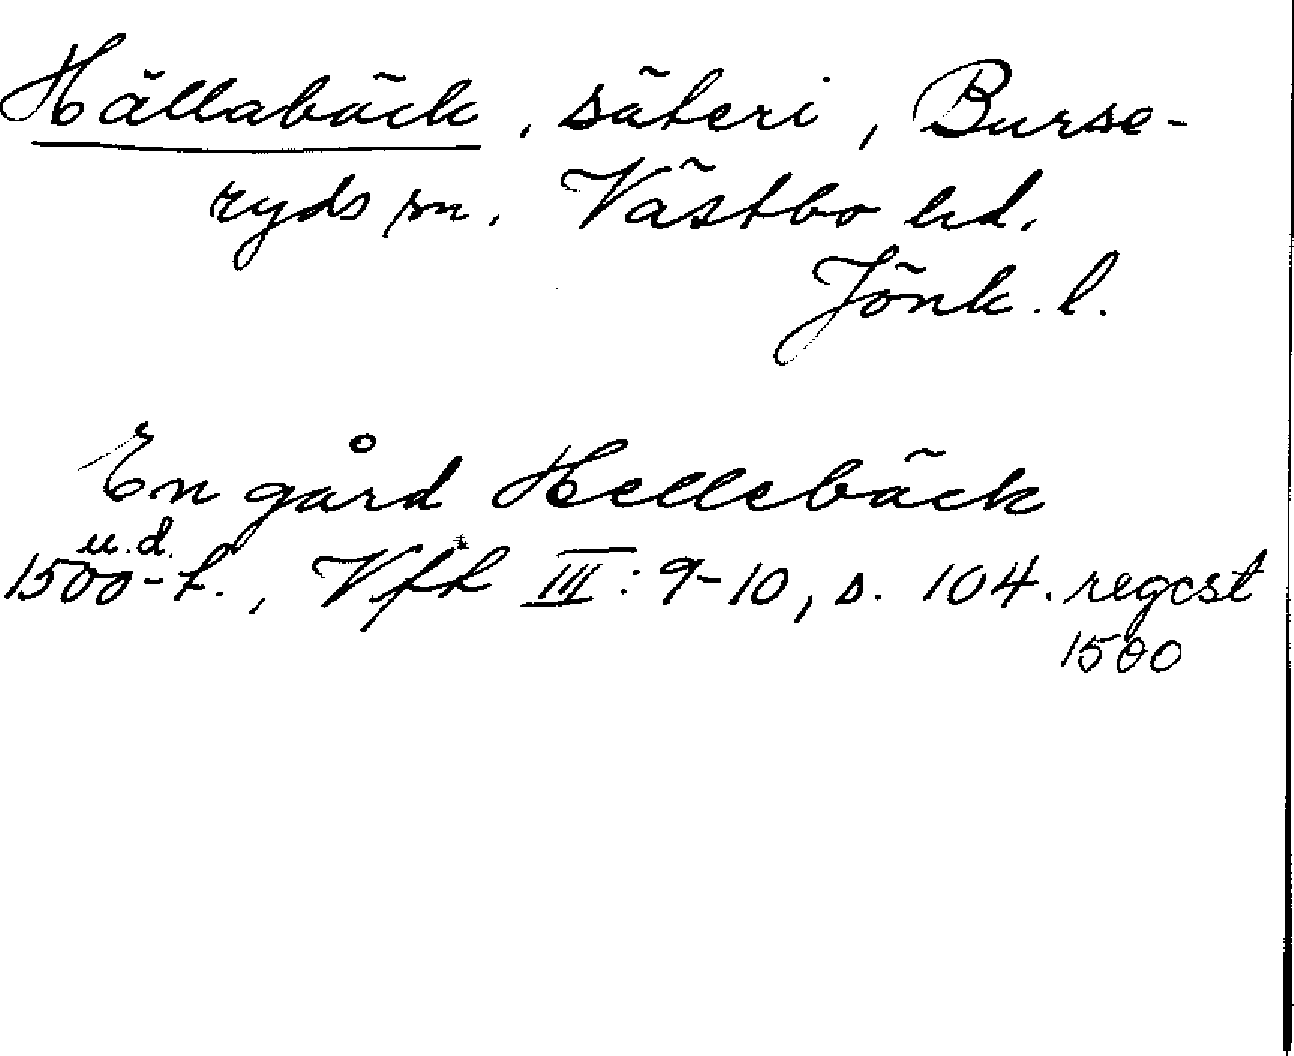 Hällabäck, säteri, Burse-
ryds sn. Västbo hd.
Jönk. l.
En gård Hellebäck
u.d.
1500-t., Vft III: 9-10, s. 104. regest
1500